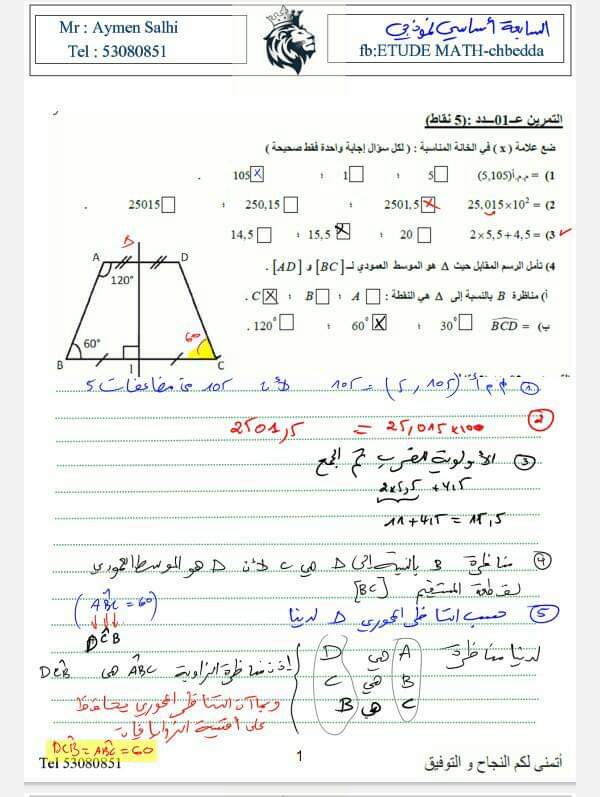 Mr : Aymen Salhi
Tel : 53080851
السابعة أساسي نموذجي
fb:ETUDE MATH-chbedda
التمرين عـ01ـدد :(5 نقاط)
ضع علامة ( x ) في الخانة المناسبة : ( لكل سؤال إجابة واحدة فقط صحيحة )
1) م.م.أ(5,105) = 5 ؛ 1 ؛ 105 x .
2) 25,015×10² = 2501,5 x ؛ 250,15 ؛ 25015 .
3) 2×5,5+4,5 = 20 ؛ 15,5 x ؛ 14,5
4) تأمل الرسم المقابل حيث Δ هو الموسط العمودي لـ [BC] و [AD] .
أ) مناظرة B بالنسبة إلى Δ هي النقطة : A ؛ B ؛ C x .
ب) BCD = 30° ؛ 60° x ؛ 120° .
Δ
A
D
120°
60°
60°
B
I
C
① م.م.أ (5, 105) = 105 لأن 105 من مضاعفات 5
② 25,015×100 = 2501,5
③ الأولوية للضرب ثم الجمع
2×5,5 +4,5
11+4,5=15,5
④ مناظرة B بالنسبة إلى Δ هي C لأن Δ هو الموسط العمودي
لقطعة المستقيم [BC]
⑤ حسب التناظر المحوري Δ لدينا
(ABC = 60)
DCB
لدينا مناظرة A هي D
B هي C
C هي B
إذن مناظرة الزاوية ABC هي DCB
وبما أن التناظر المحوري يحافظ
على أقيسة الزوايا فإن
DCB = ABC = 60
Tel 53080851
1
أتمنى لكم النجاح و التوفيق